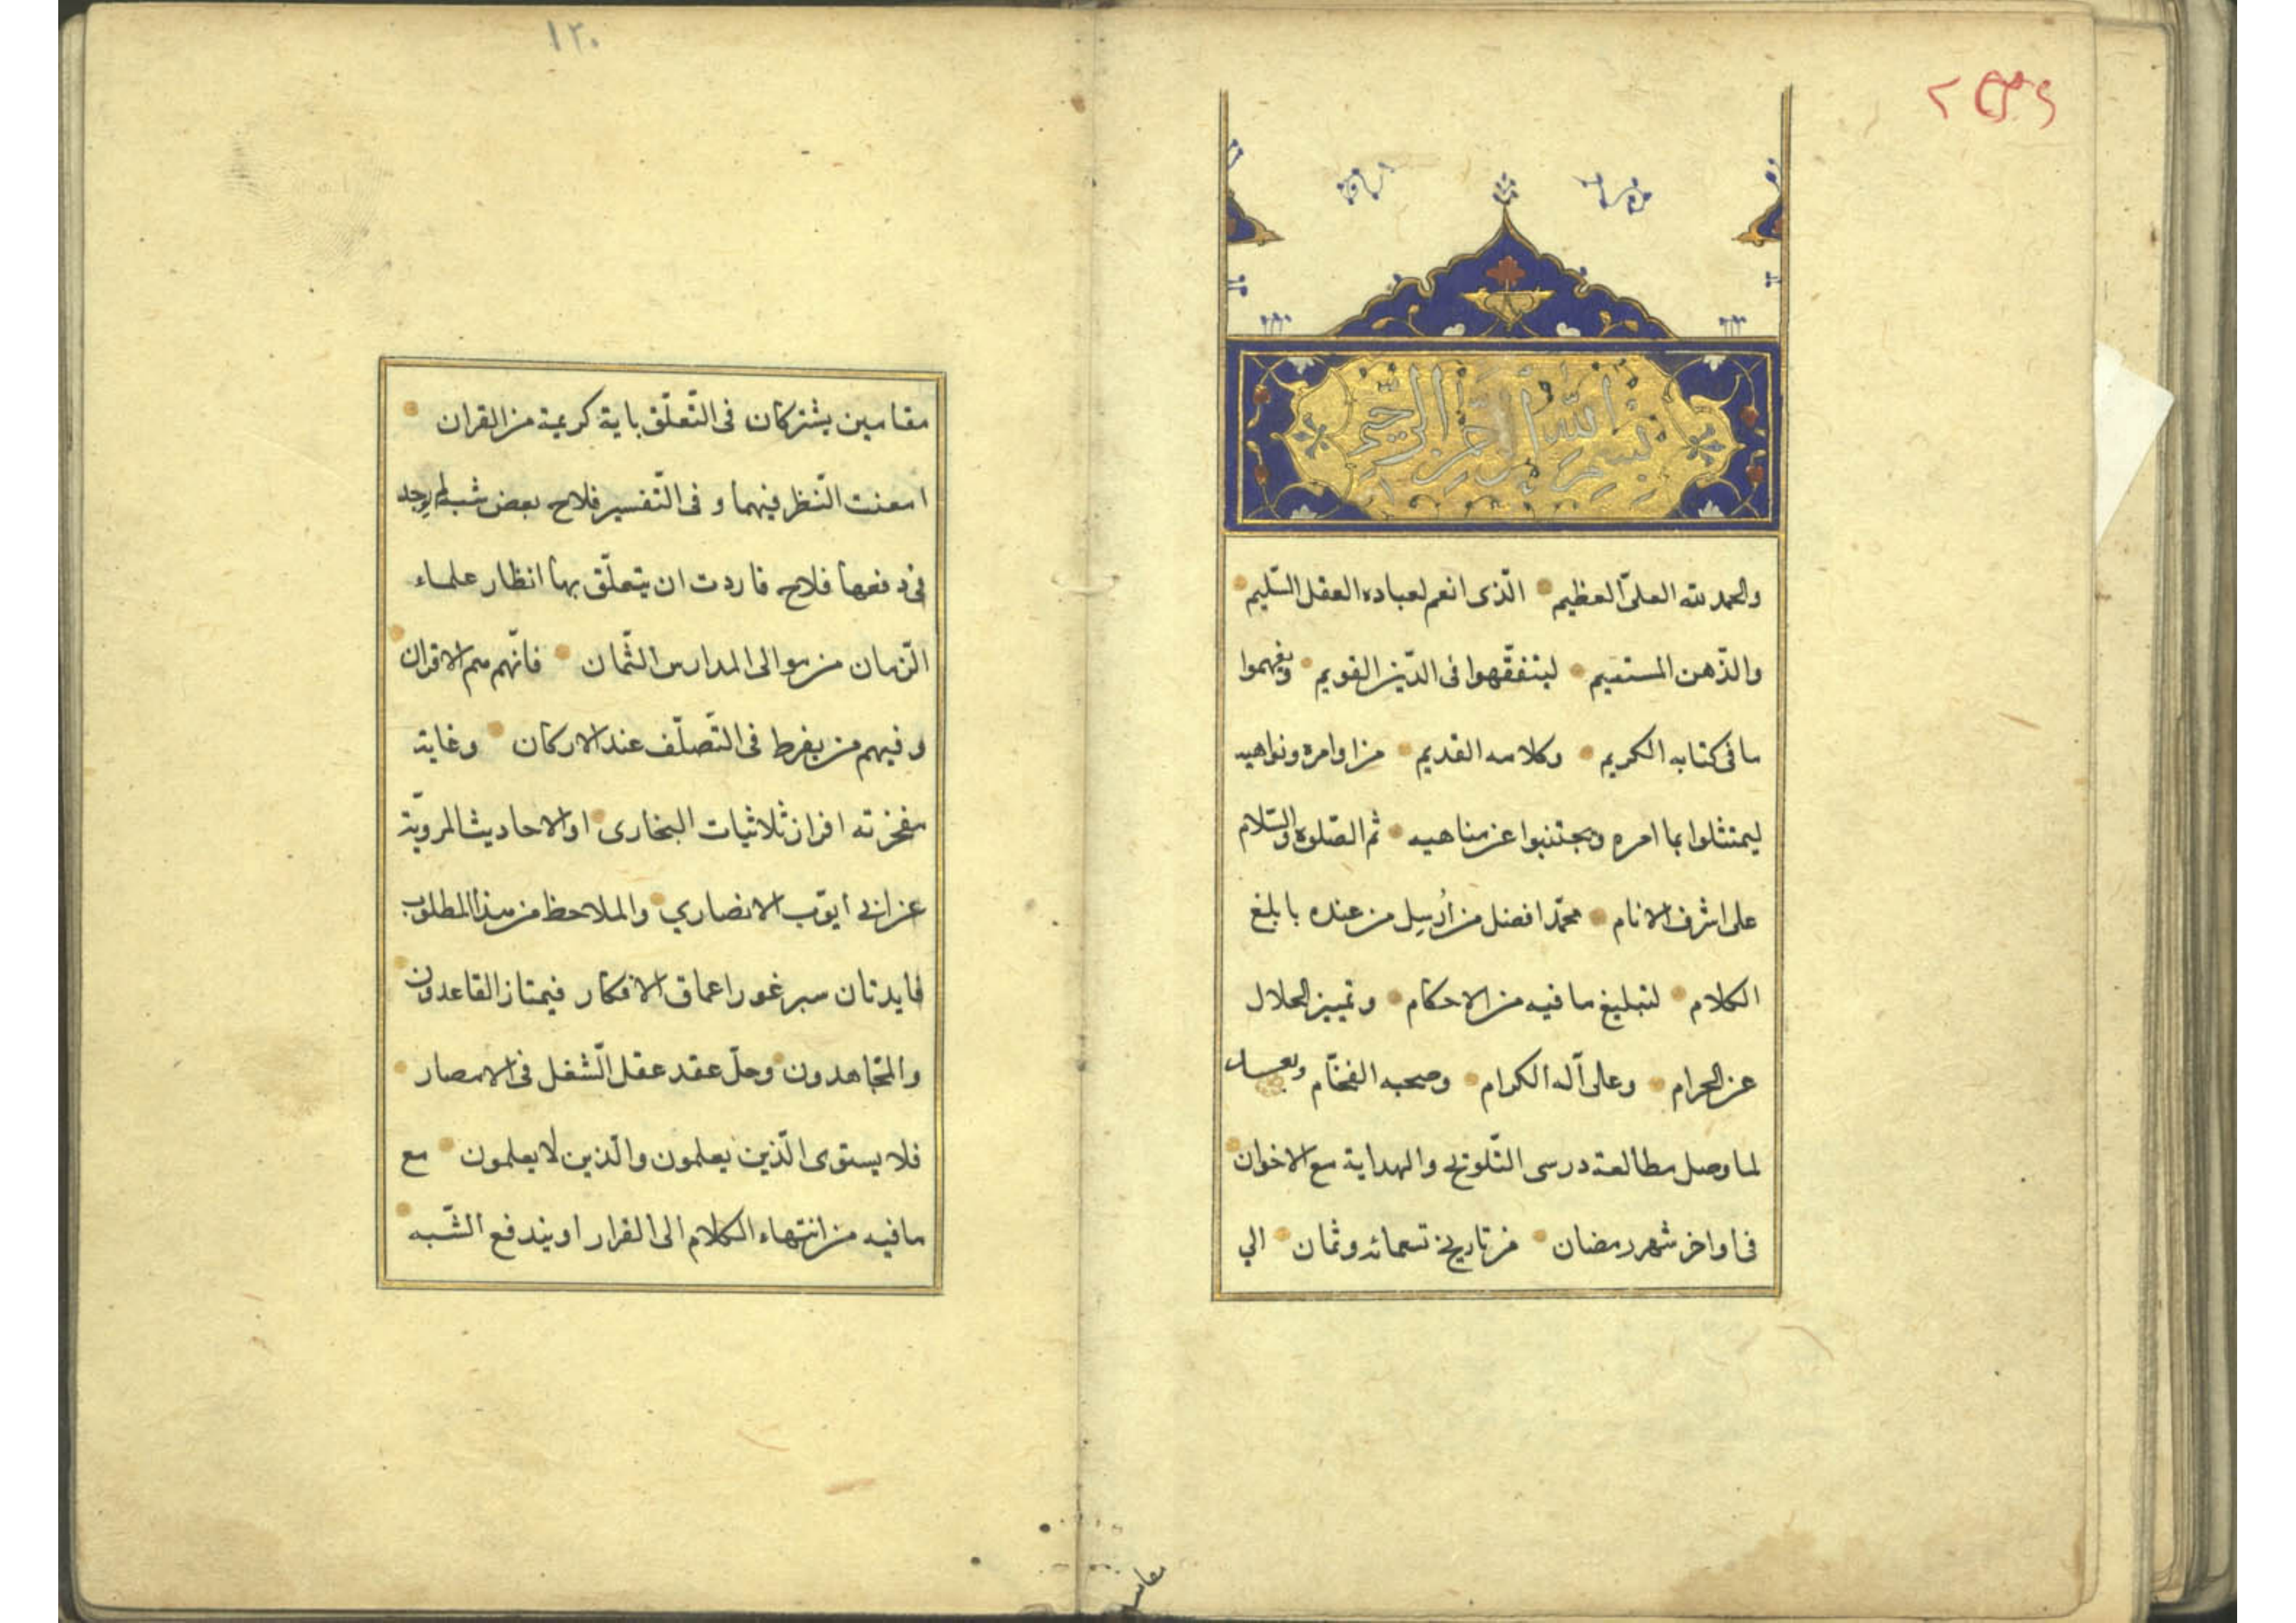 بسم الله الرحمن الرحيم
والحمد لله العلىّ العظيم الّذى انعم لعباده العقل السّليم
والذّهن المستقيم ليتفقّهوا فى الدّين القويم ويفهموا
ما فى كتابه الكريم وكلامه القديم من اوامره ونواهيه
ليمتثلوا بما امره ويجتنبوا عن مناهيه ثم الصّلوة والسّلام
على اشرف الانام محمّد افضل من اُرسِل من عنده بابلغ
الكلام لتبليغ ما فيه من الاحكام وتمييز الحلال
عن الحرام وعلى آله الكرام وصحبه الفخّام وبعد
لما وصل مطالعة درسى التّلويح والهداية مع الاخوان
فى اواخر شهر رمضان من تاريخ تسعمائه وثمان الي
مقا
١٢٠
مقامين يشتركان فى التّعلّق باية كريمة من القران
امعنت النّظر فيهما و فى التّفسير فلاح بعض شبه لم يوجد
فى دفعها فلاح فاردت ان يتعلّق بها انظار علماء
الزّمان من موالى المدارس الثّمان فانّهم هم الاقران
وفيهم من يفرط فى التّصلّف عند الاركان وغاية
مفخرته اقران ثلاثيات البخارى او الاحاديث المرويّة
عن ابى ايوّب الانصاري والملاحظ من هذا المطلوب
فايدتان سبر غور اعماق الافكار فيمتاز القاعدون
والمجّاهدون وحلّ عقد عقل الشّغل فى الامصار
فلا يستوى الّذين يعلمون والّذين لا يعلمون مع
ما فيه من انتهاء الكلام الى القرار او يندفع الشّبه